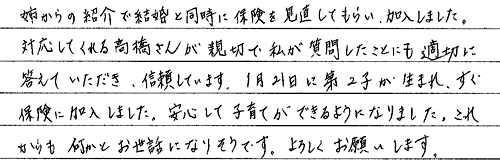 姉からの紹介で結婚と同時に保険を見直してもらい、加入しました。
対応してくれる高橋さんが親切で私が質問したことにも適切に
答えていただき、信頼しています。1月21日に第2子が生まれ、すぐ
保険に加入しました。安心して子育てができるようになりました。これ
からも何かとお世話になりそうです。よろしくお願いします。